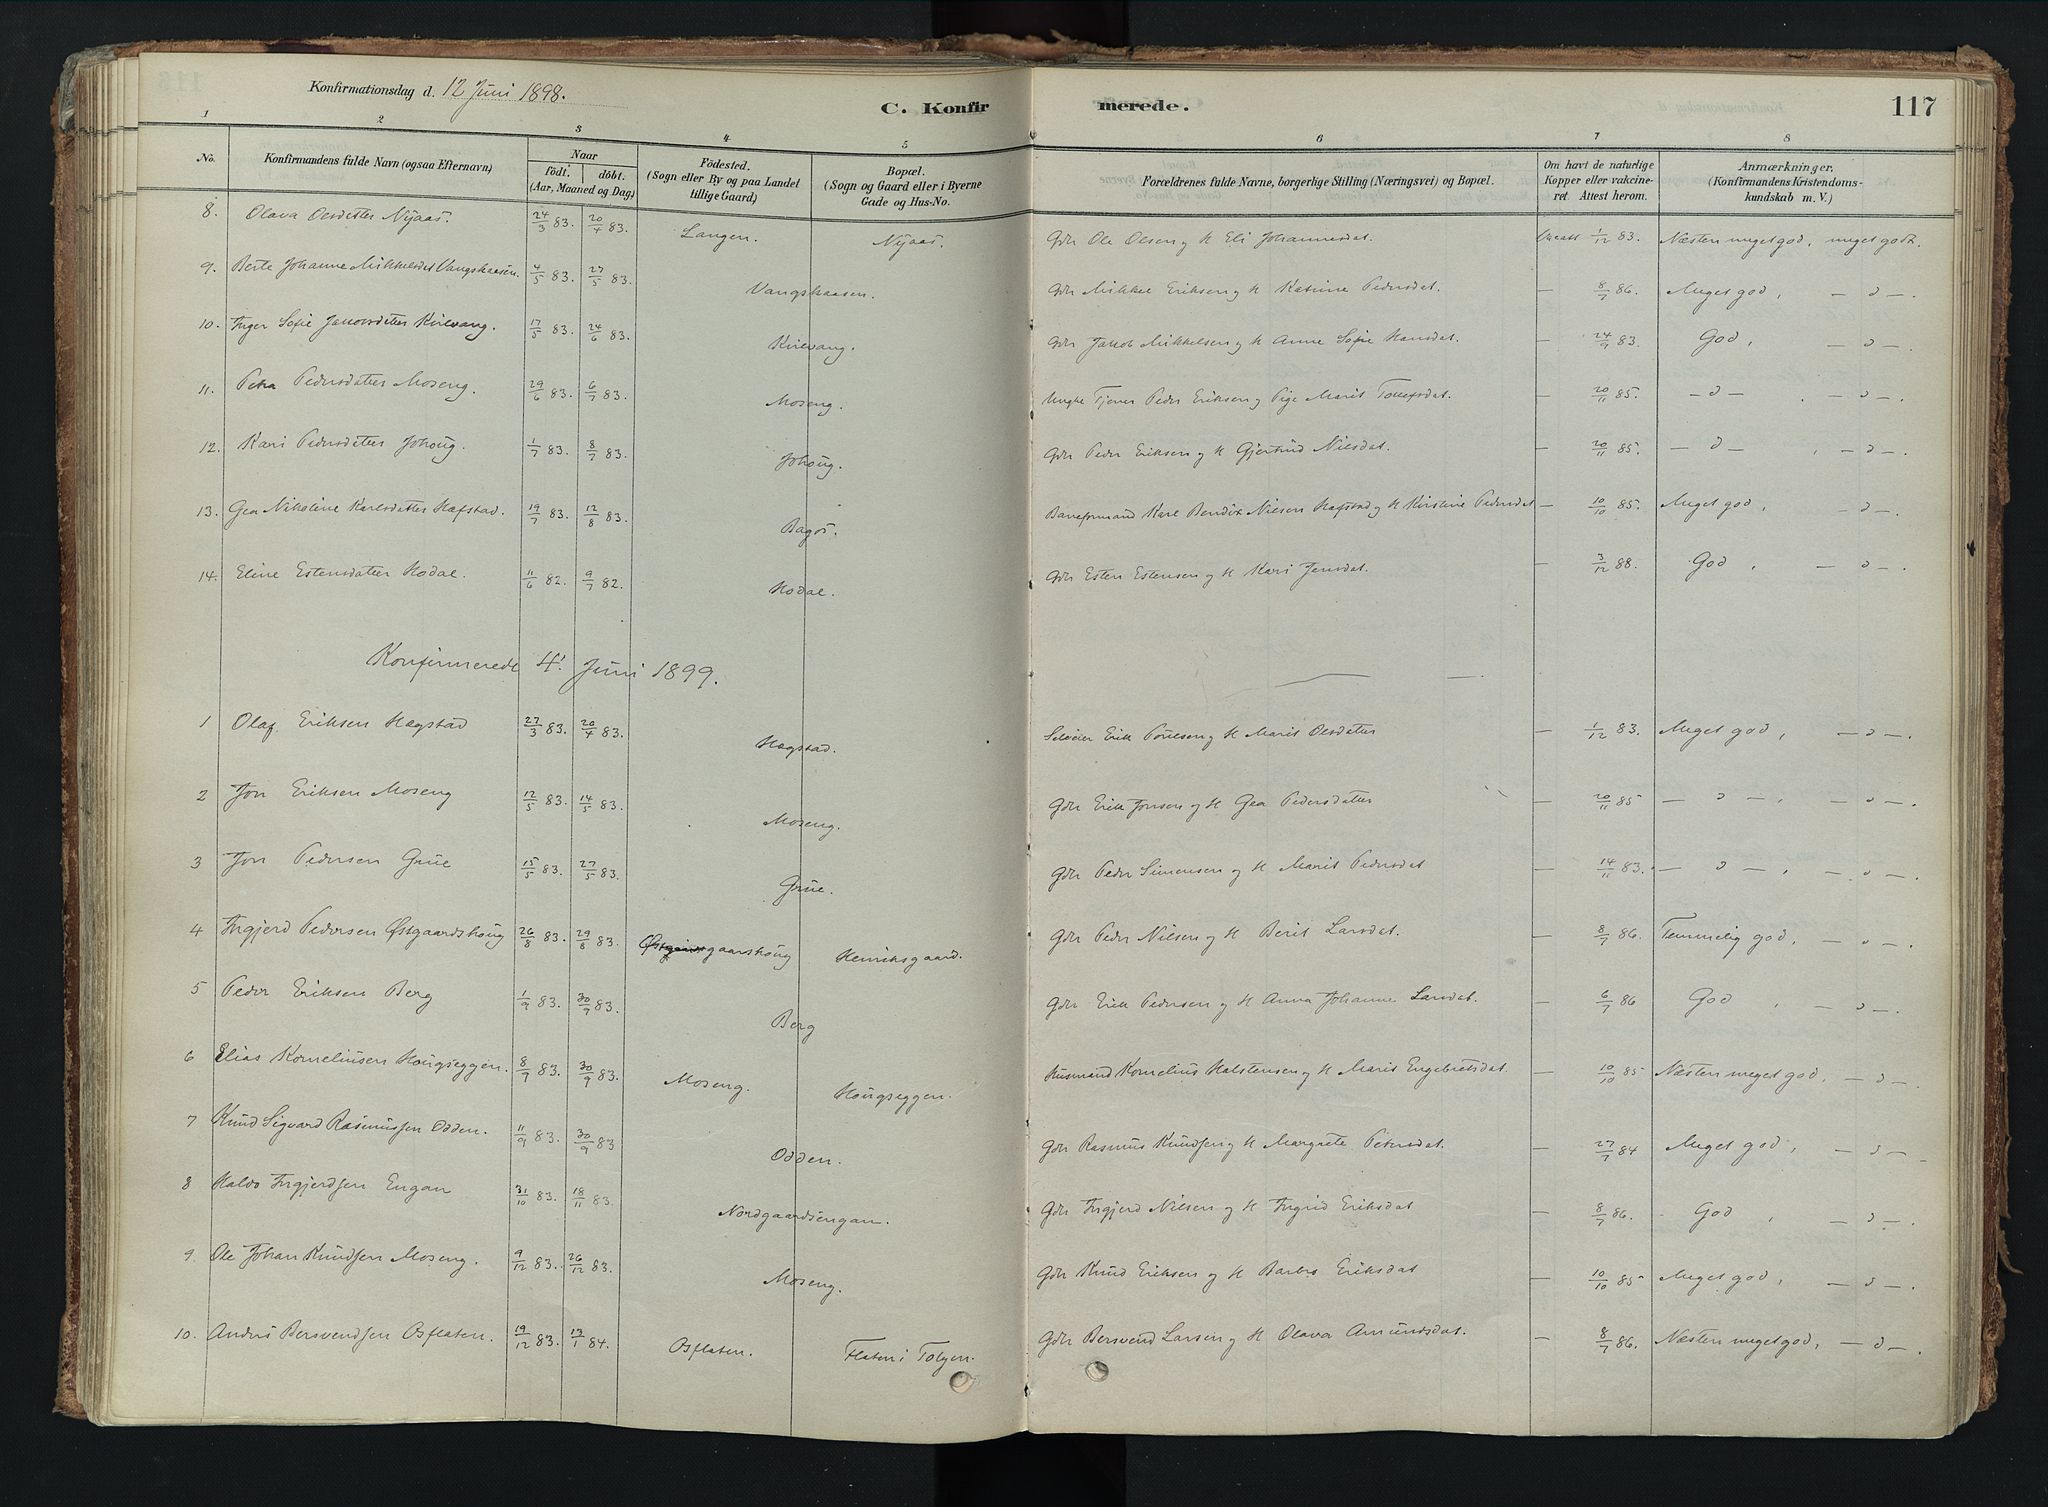 Konfirmationsdag d. 12 Juni 1898.
C. Konfirmerede.
117
1 2 3 4 5 6 7 8
No. Konfirmandens fulde Navn (ogsaa Efternavn) Naar födt. döbt. (Aar, Maaned og Dag) Födested. (Sogn eller By og paa Landet tillige Gaard) Bopæl. (Sogn og Gaard eller i Byerne Gade og Hus-No. Forældrenes fulde Navne, borgerlige Stilling (Næringsvei) og Bopæl. Om havt de naturlige Kopper eller vakcineret. Attest herom. Anmærkninger. (Konfirmandens Kristendomskundskab m. V.)
8. Olava Olesdatter Nyaas. 24/3 83. 20/4 83. Langen. Nyaas. Gdr Ole Olsen og H Eli Johannesdat. 1/12 83. Næsten meget god, meget godt.
9. Berte Johanne Mikkelsdat Vangshaasen. 4/5 83. 27/5 83. Vangshaasen. Gdr Mikkel Eriksen og H Katrine Pedersdat. — 8/7 86. Meget god, — " —.
10. Inger Sofie Jakobsdatter Kirkvang. 17/5 83. 24/6 83. Kirkvang. Gdr Jakob Mikkelsen og H Anne Sofie Hansdat. — 24/9 83. God, — " —.
11. Petra Pedersdatter Moseng. 29/6 83. 6/7 83. Moseng. Ungk Tjener Peder Eriksen og Pige Marit Tollefsdat. — 20/11 85. — " — . — " —.
12. Kari Pedersdatter Johoug. 1/7 83. 8/7 83. Johoug. Gdr Peder Eriksen og H Gjertrud Nilsdat. — 20/11 85. — " — , — " —.
13. Gea Nikoline Karlsdatter Hafstad. 19/7 83. 12/8 83. Bagös. Baneformand Karl Bendix Nilsen Hafstad og H Kirstine Pedersdat — 10/10 85. Meget god, — " —.
14. Eline Estensdatter Hodal. 11/6 82. 9/7 82. Hodal. Gdr Esten Estensen og H Kari Jensdat. — 3/12 88. God, — " —.
Konfirmerede 4. Juni 1899.
1 Olaf Eriksen Hagstad 27/3 83. 20/4 83. Hagstad. Selveier Erik Poulsen og H Marit Olsdatter — 1/12 83. Meget god, — " —.
2 Jon Eriksen Moseng 12/5 83. 14/5 83. Moseng. Gdr Erik Jonsen og H Gea Pedersdatter — 20/11 85 — " —, — " —.
3 Jon Pedersen Grue 15/5 83. 27/5 83. Grue. Gdr Peder Simensen og H Marit Pedersdat — 14/11 83. — " —, — " —.
4 Ingjerd Pedersen Østgaardshoug 26/8 83. 29/8 83. Østgaarshoug Henriksgaard. Gdr Peder Nilsen og H Berit Larsdat. — 8/7 86. Temmelig god, — " —.
5 Peder Eriksen Berg 1/9 83. 30/9 83. Berg Gdr Erik Pedersen og H Anna Johanne Larsdat. — 6/7 86 God, — " —.
6 Elias Korneliusen Hougseggen. 8/9 83. 30/9 83. Moseng. Hougseggen. Husmand Kornelius Halstensen og H Marit Engebretsdat. — 10/10 85 Næsten meget god, — " —.
7 Knud Sigvard Rasmussen Odden. 11/9 83. 30/9 83 Odden. Gdr Rasmus Knudsen og H Margrete Petersdat. — 27/7 84 Meget god, — " — -
8 Haldo Ingjerdsen Engan 31/10 83. 18/11 83. Nordgaardsengan. Gdr Ingjerd Nilsen og H Ingrid Eriksdat — 8/7 86. God, — " —.
9 Ole Johan Knudsen Moseng. 9/12 83. 26/12 83. Moseng. Gdr Knud Eriksen og H Barbro Eriksdat — 10/10 85 Meget god, — " —.
10. Anders Bersvendsen Osflaten. 19/12 83. 13/1 84. Osflaten. Flaten i Tolgen. Gdr Bersvend Larsen og H Olava Amundsdat. — 8/7 86. Næsten meget god, — " —.